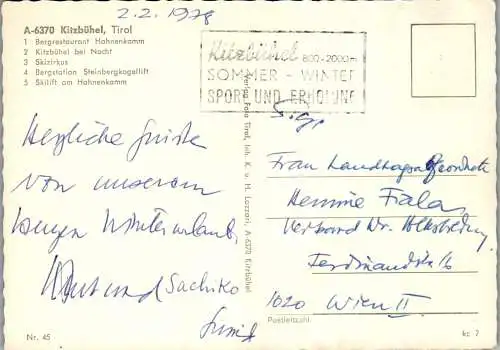 2.2.1978
A-6370 Kitzbühel, Tirol
1 Bergrestaurant Hahnenkamm
2 Kitzbühel bei Nacht
3 Skizirkus
4 Bergstation Steinbergkogellift
5 Skilift am Hahnenkamm
Kitzbühel 800-2000m
SOMMER - WINTER
SPORT UND ERHOLUNG
Herzliche Grüße
von unserem
kurzen Winterurlaub
Kurt und Sachiko
Nr. 45
Verlag Foto Tirol, Inh. K. u. H. Lazzari, A-6370 Kitzbühel
Frau Landtagsabgeordnete
Hermine Fiala
Verband Wr. Volksbildung
Ferdinandstr.
1020 Wien II
Postleitzahl
kc 7